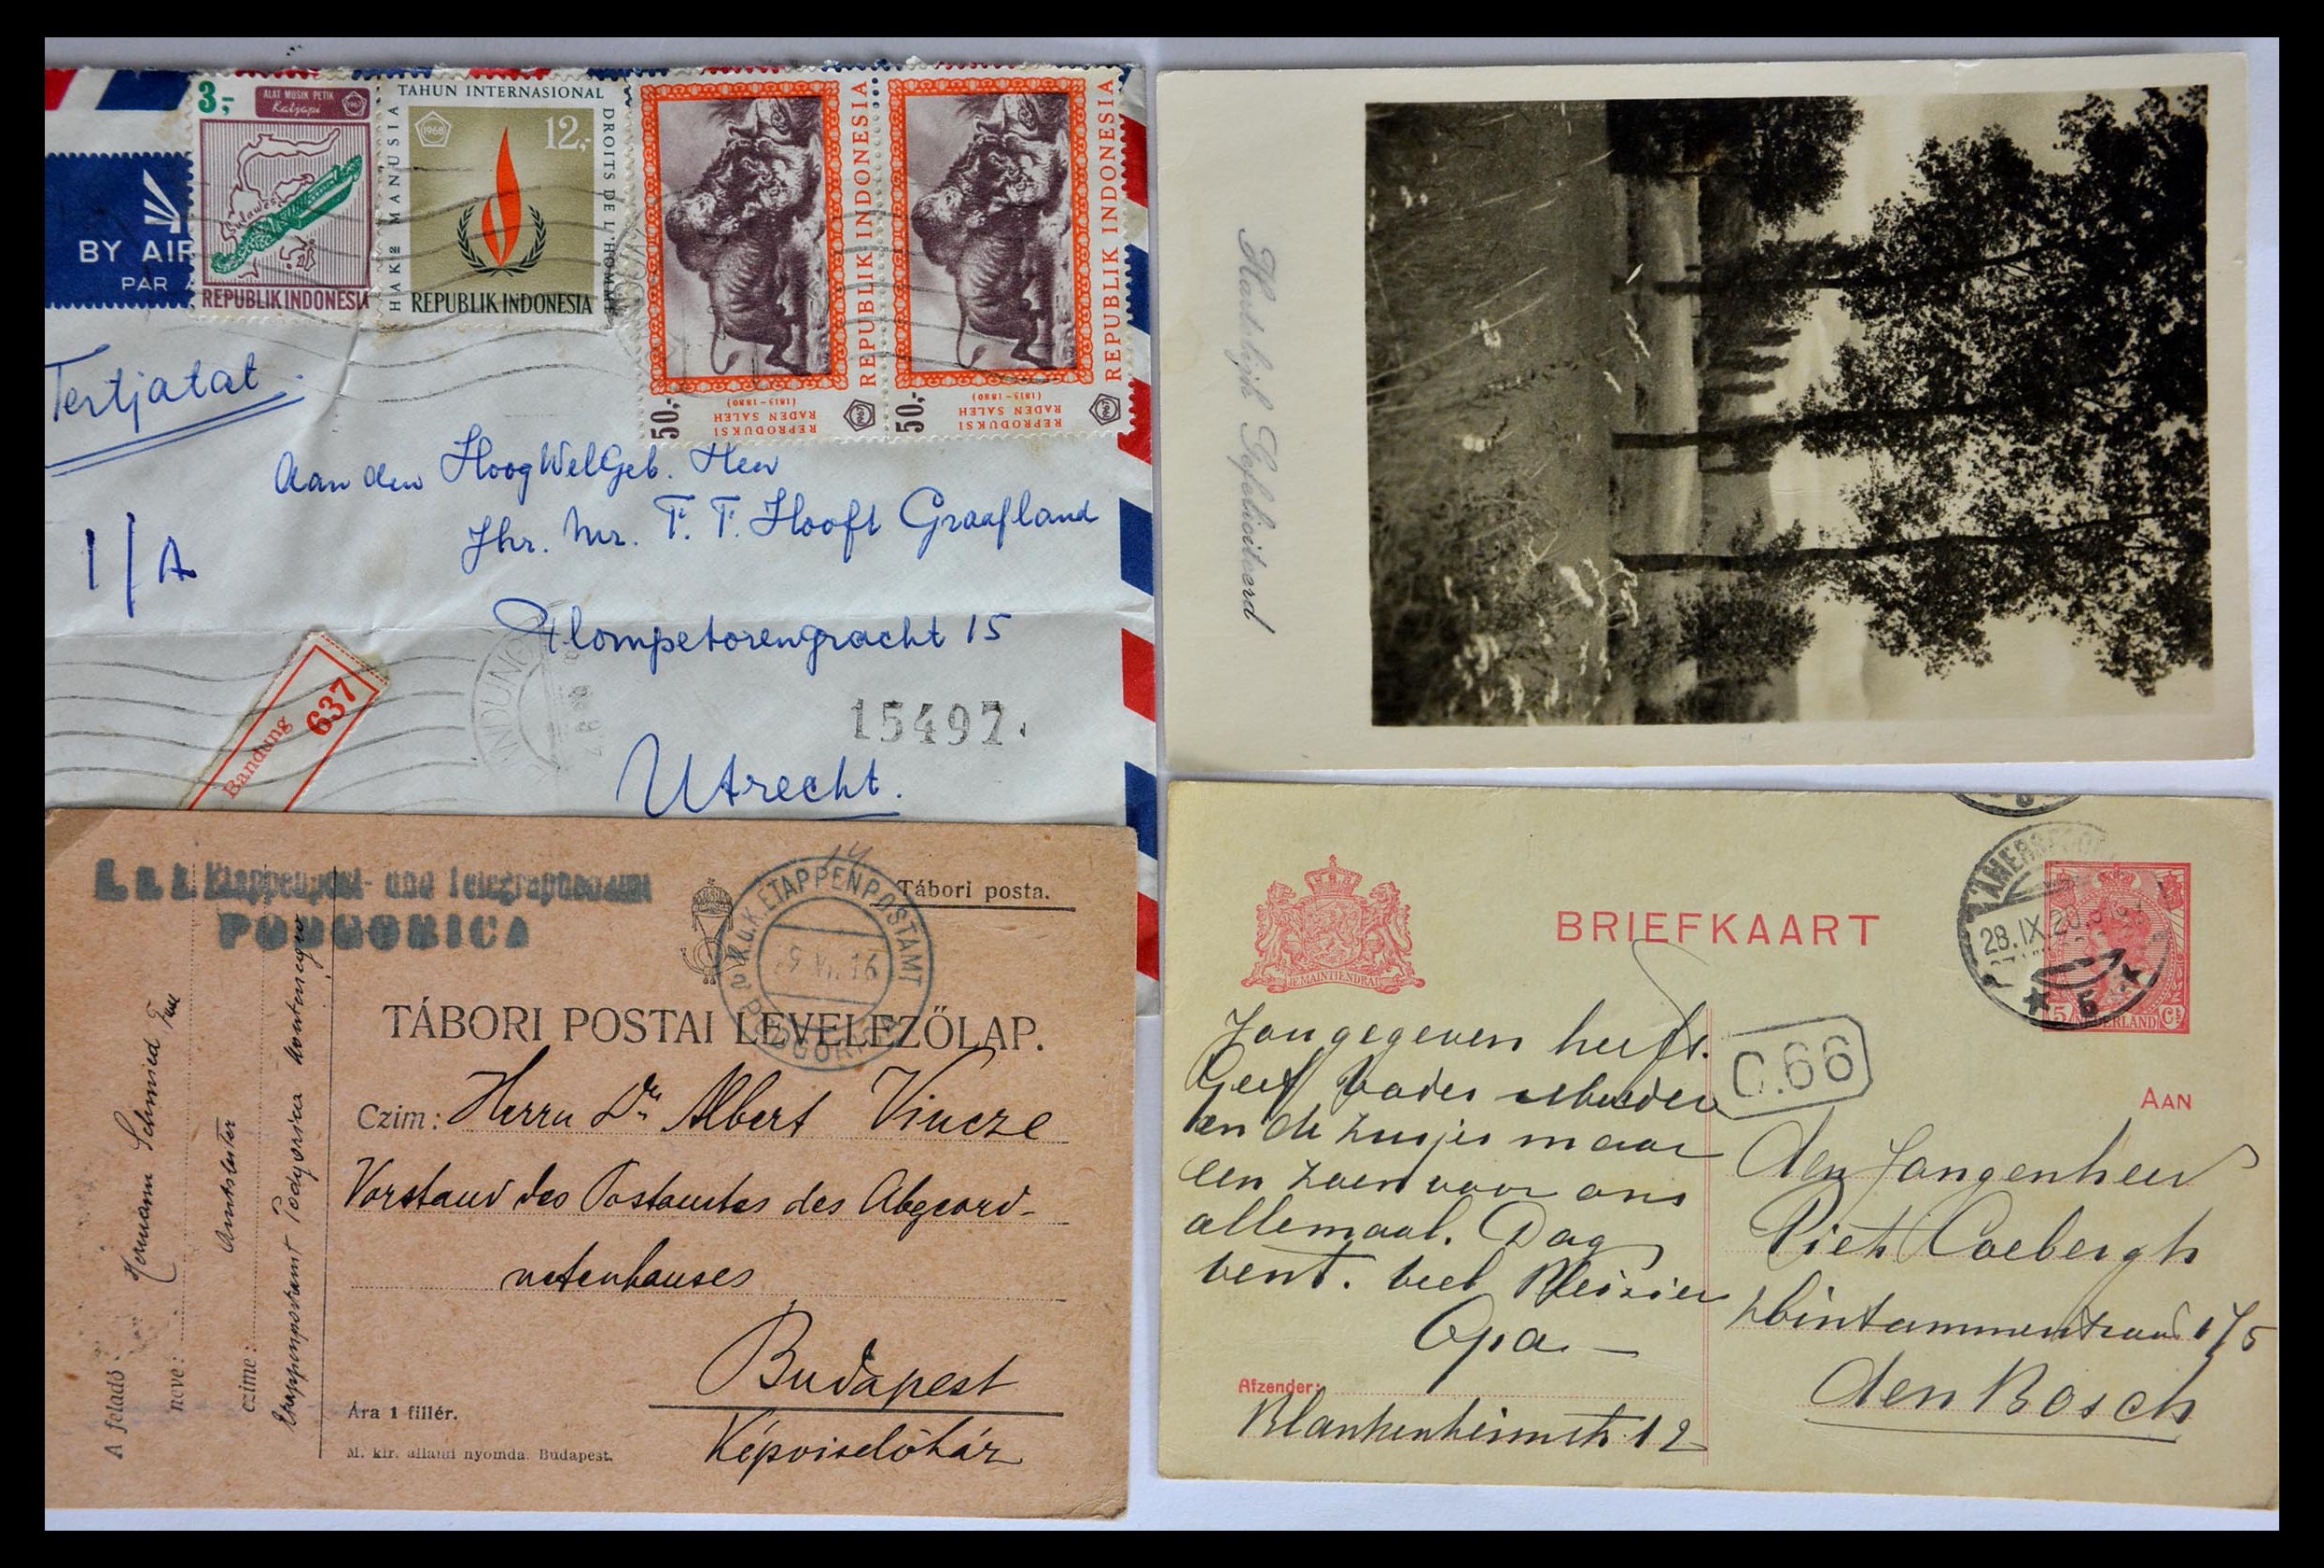 3,-
ALAT MUSIK PETIK
Katjapi
1967
Sulawesi
REPUBLIK INDONESIA
TAHUN INTERNASIONAL
HAK2 MANUSIA
DROITS DE L'HOMME
1968
12,-
REPUBLIK INDONESIA
REPUBLIK INDONESIA
50,-
REPRODUKSI
RADEN SALEH
(1813-1880)
1967
REPUBLIK INDONESIA
50,-
REPRODUKSI
RADEN SALEH
(1813-1880)
1967
BY AIR
PAR
Tertjatat
Aan den HoogWelGeb. Heer
Jhr. Mr. F. T. Hooft Graafland
1/A
Plompetorengracht 15
Bandung
637
15497.
Utrecht.
Hartelijk Gefeliciteerd
K. u. k. Etappenpost- und Telegraphenamt
PODGORICA
K.u.K. ETAPPENPOSTAMT
9 VI. 16
PODGORICA
Tábori posta.
TÁBORI POSTAI LEVELEZŐLAP.
Czim: Herrn Dr Albert Vincze
Vorstand des Postamtes des Abgeord-
netenhauses
Budapest
Képviselőház
Ára 1 fillér.
M. kir. állami nyomda. Budapest.
A feladó
neve: Hermann Schmied
czime: Amtsleiter
Etappenpostamt Podgorica Montenegro
BRIEFKAART
JE MAINTIENDRAI
AMERSFOORT
28.IX.20
5
5 NEDERLAND Ct
C.66
AAN
Jongegeven heeft.
Geef Vader Moeder
en de zusjes maar
een zoen voor ons
allemaal. Dag
vent. veel Plezier
Opa
Afzender:
Blankenheimstr 12
den Jongenheer
Piet Coebergh
Hintammerstraat 175
den Bosch